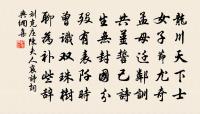 龍川天下士
子婦節尤奇
孟母遷鄰訓
共姜誓己詩
生無封國分
歿有表阡時
曾識雙珠樹
聊為補些辭
劉克莊陳夫人哀詩詞
典網集